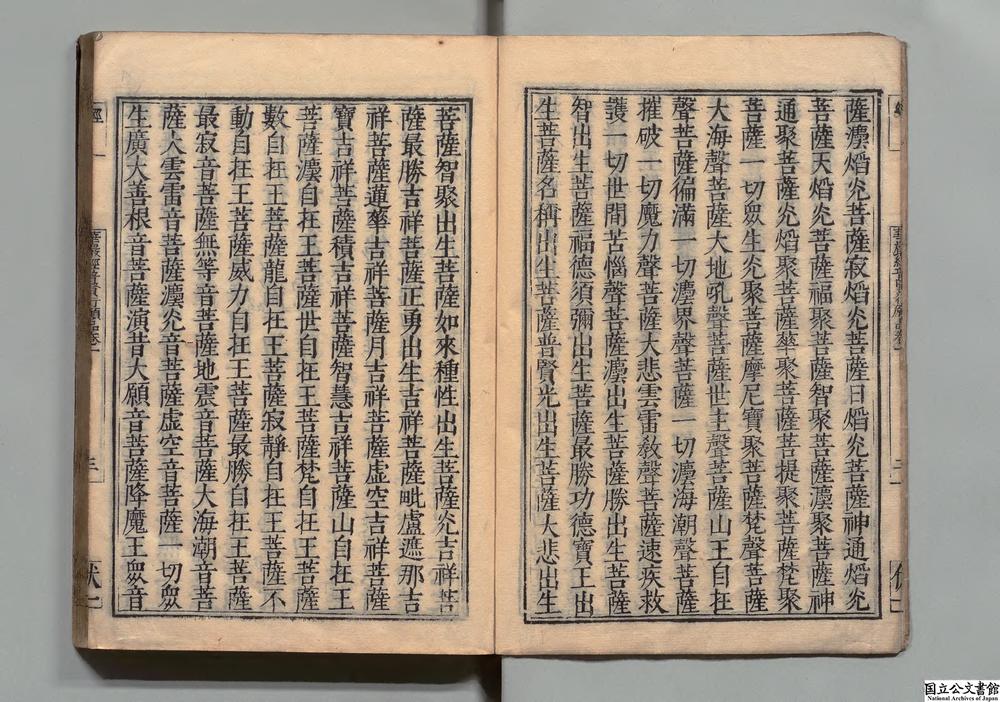 薩灋熖灮菩薩寂熖灮菩薩日熖灮菩薩神通熖灮
菩薩天熖灮菩薩福聚菩薩智聚菩薩灋聚菩薩神
通聚菩薩灮熖聚菩薩華聚菩薩菩提聚菩薩梵聚
菩薩一切眾生灮聚菩薩摩尼寶聚菩薩梵聲菩薩
大海聲菩薩大地吼聲菩薩世主聲菩薩山王自在
聲菩薩徧滿一切灋界聲菩薩一切灋海潮聲菩薩
摧破一切魔力聲菩薩大悲雲雷敎聲菩薩速疾救
護一切世間苦惱聲菩薩灋出生菩薩勝出生菩薩
智出生菩薩福德須彌出生菩薩最勝功德寶王出
生菩薩名稱出生菩薩普賢光出生菩薩大悲出生
菩薩智聚出生菩薩如來種性出生菩薩灮吉祥菩
薩最勝吉祥菩薩正勇出生吉祥菩薩毗盧遮那吉
祥菩薩蓮華吉祥菩薩月吉祥菩薩虛空吉祥菩薩
寶吉祥菩薩積吉祥菩薩智慧吉祥菩薩山自在王
菩薩灋自在王菩薩世自在王菩薩梵自在王菩薩
數自在王菩薩龍自在王菩薩寂靜自在王菩薩不
動自在王菩薩威力自在王菩薩最勝自在王菩薩
最寂音菩薩無等音菩薩地震音菩薩大海潮音菩
薩大雲雷音菩薩灋灮音菩薩虛空音菩薩一切眾
生廣大善根音菩薩演昔大願音菩薩降魔王眾音
經一
三
国立公文書館
National Archives of Japan